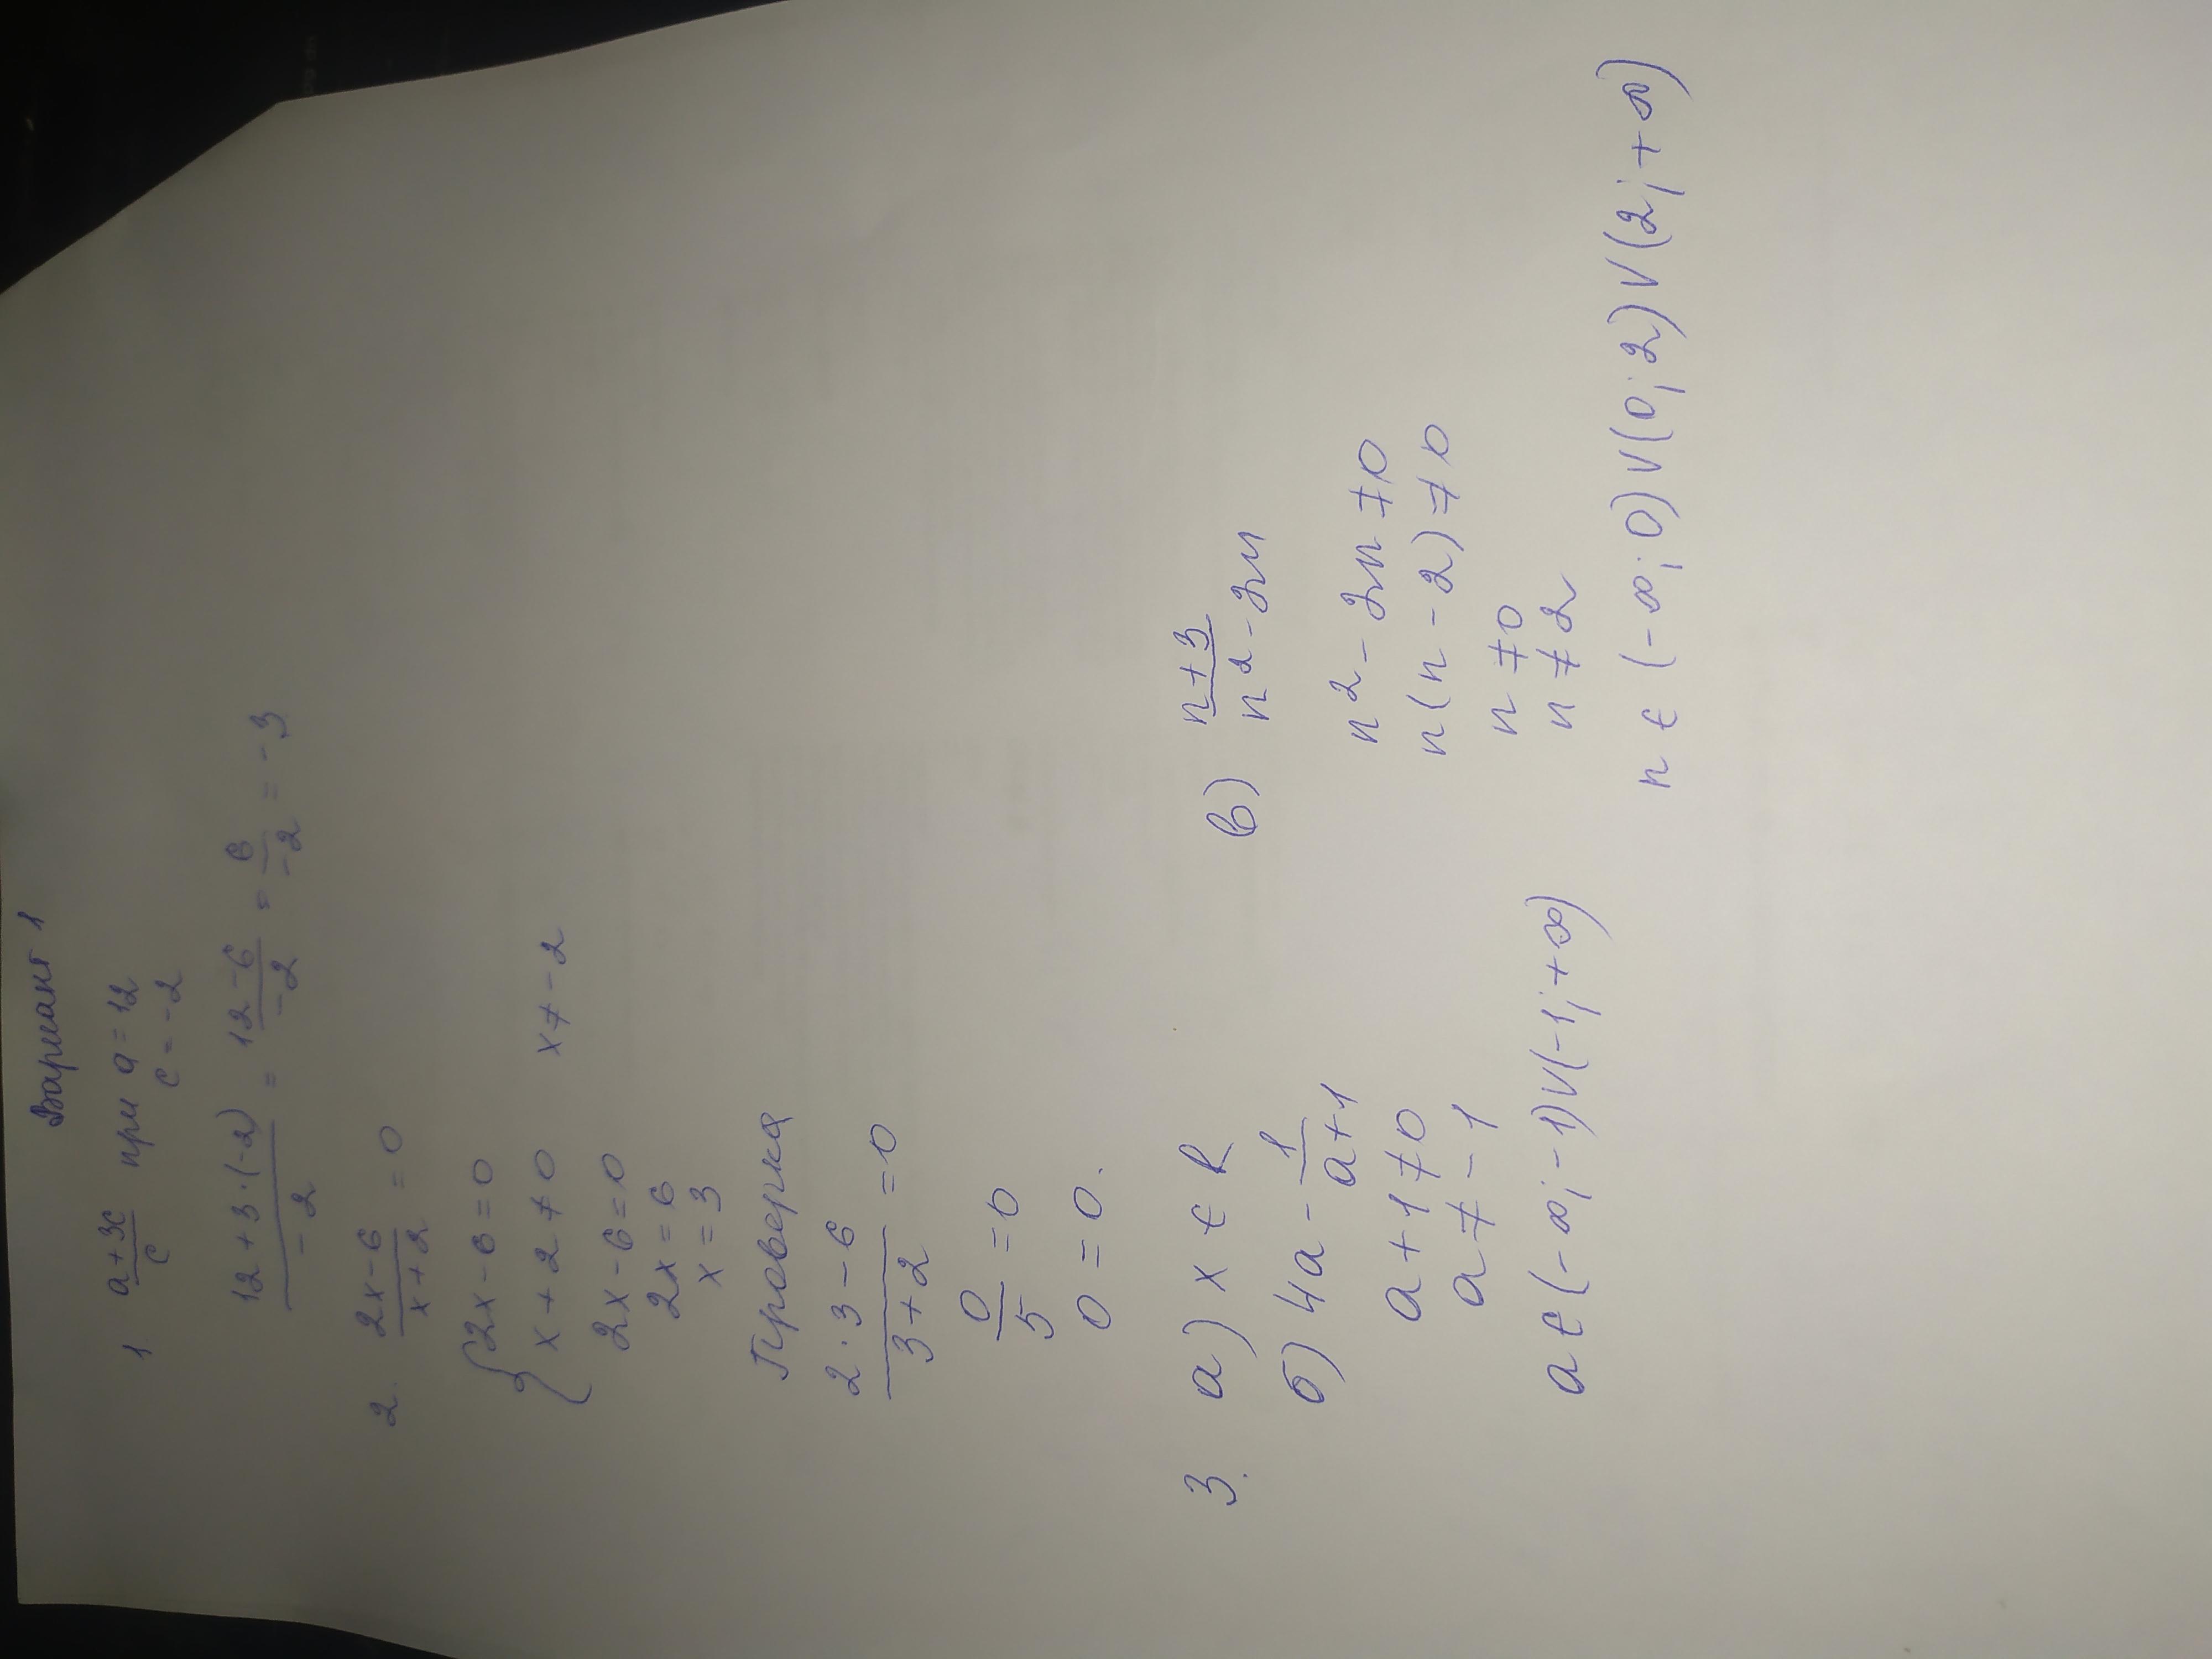 Вариант 1
1. a+3c/c при a=12
c=-2
12+3·(-2)/-2 = 12-6/-2 = 6/-2 = -3
2. 2x-6/x+2 = 0
{2x-6=0
x+2≠0 x≠-2
2x-6=0
2x=6
x=3
Проверка
2·3-6/3+2 =0
0/5 =0
0=0.
3. а) x ∈ R
б) 4a - 1/a+1
a+1≠0
a≠-1
a ∈ (-∞; -1) V (-1; +∞)
в) n+3/n²-2n
n²-2n≠0
n(n-2)≠0
n≠0
n≠2
n ∈ (-∞; 0) V (0; 2) V (2; +∞)